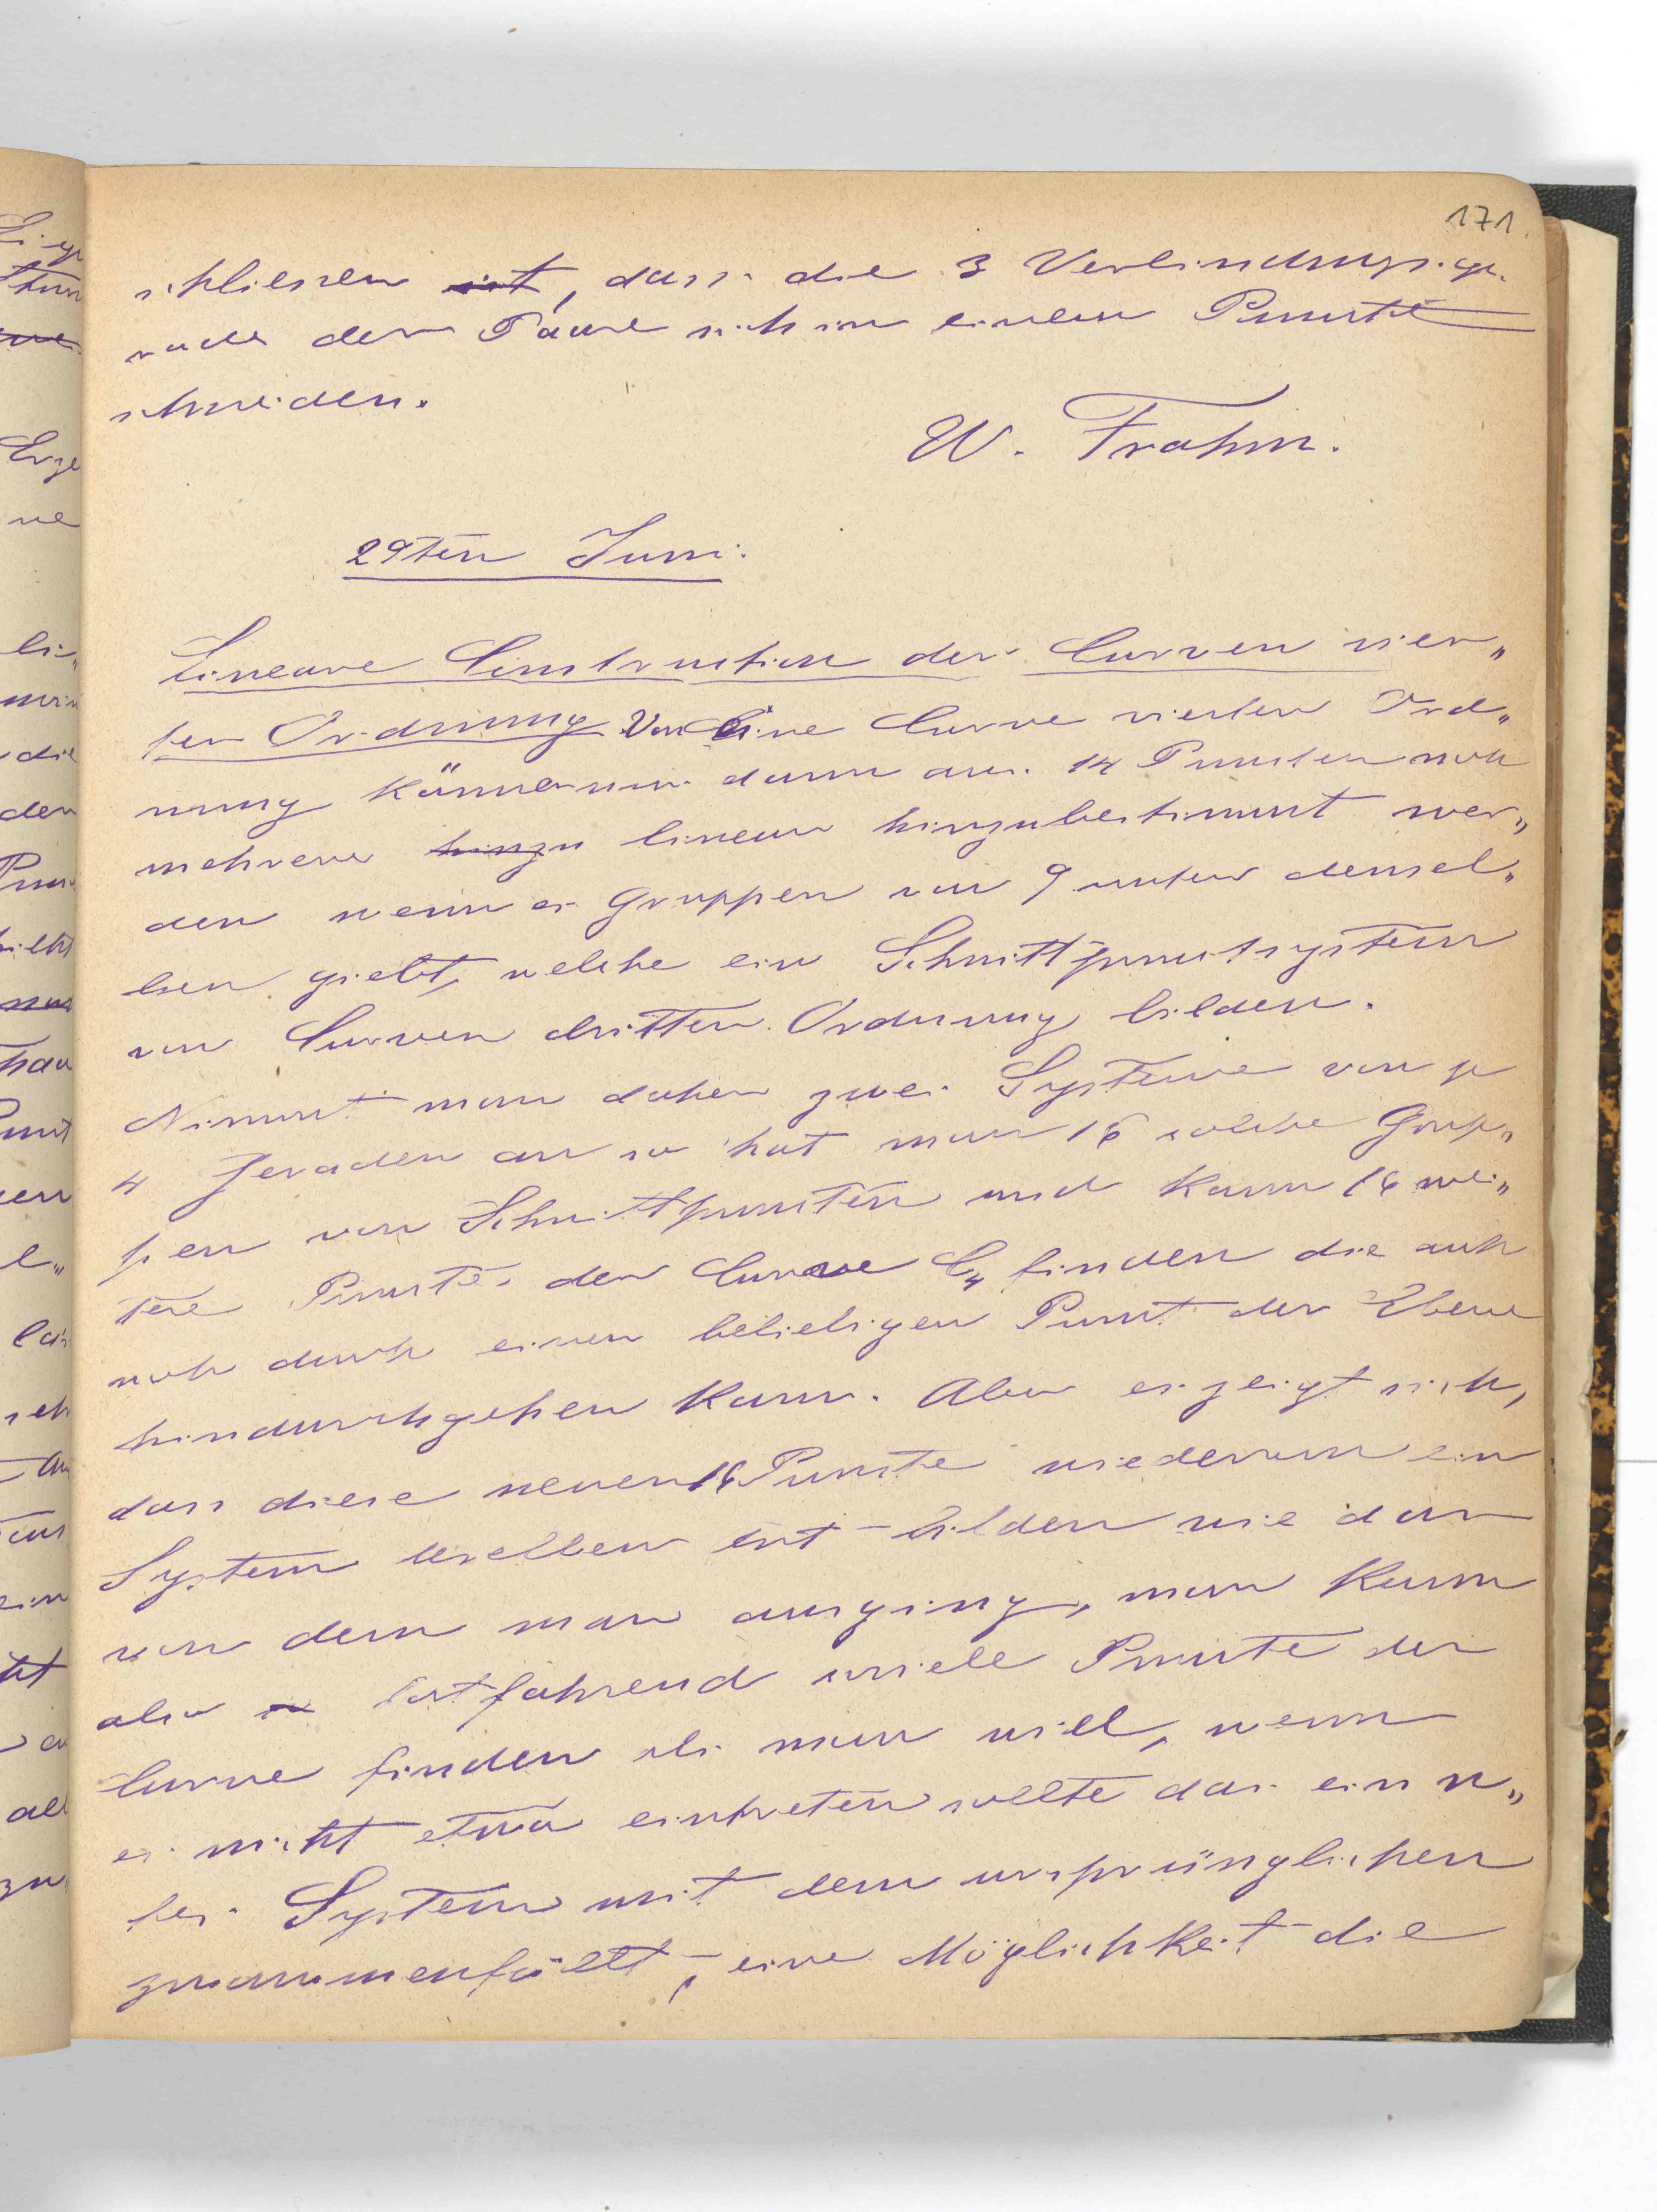 171.
schliessen ist, dass die 3 Verbindungsge-
rade der Paare sich in einem Puncte
schneiden.
W. Frahm.
29ten Juni.
Lineare Construction der Curven vier„
ter Ordnung. Von Eine Curve vierter Ord„
nung können nur dann aus 14 Puncten noch
mehrere hinzu linear hinzubestimmt wer„
den wenn es Gruppen von 9 unter densel„
ben giebt, welche ein Schnittpunctsystem
von Curven dritter Ordnung bilden.
Nimmt man daher zwei Systeme von je
4 Geraden an so hat man 16 solche Grup„
pen von Schnittpuncten und kann 16 wei„
tere Puncte der Curve C4 finden die auch
noch durch einen beliebigen Punct der Ebene
hindurchgehen kann. Aber es zeigt sich,
dass diese neuen 16 Puncte wiederum ein
System derselben Art bilden wie das
von dem man ausging, man kann
also fortfahrend soviele Puncte der
Curve finden als man will, wenn
es nicht etwa eintreten sollte das ein n„
tes System mit dem ursprünglichen
zusammenfällt, eine Möglichkeit die